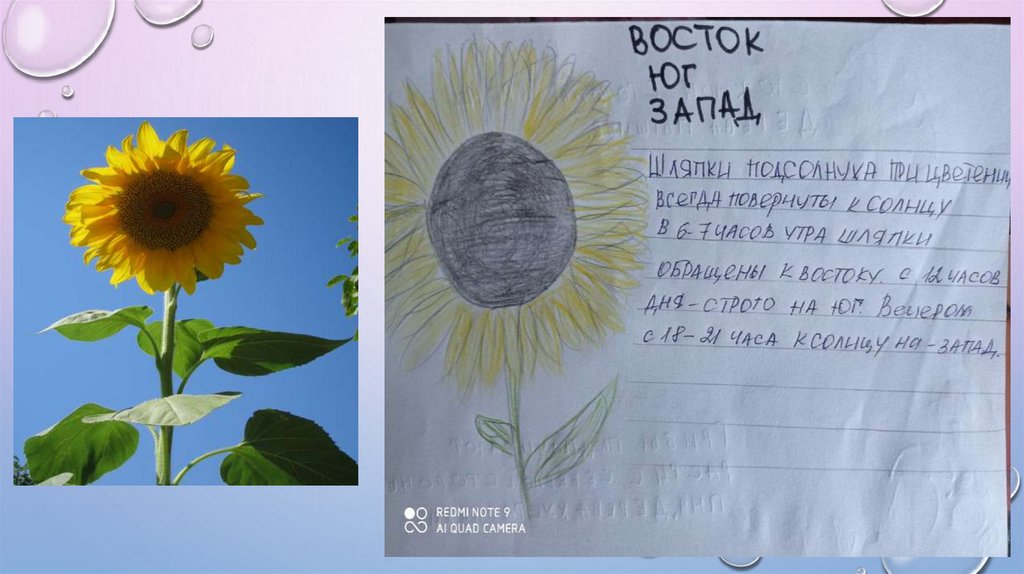 ВОСТОК
ЮГ
ЗАПАД
ШЛЯПКИ ПОДСОЛНУХА ПРИ ЦВЕТЕНИИ
ВСЕГДА ПОВЕРНУТЫ К СОЛНЦУ
В 6-7 ЧАСОВ УТРА ШЛЯПКИ
ОБРАЩЕНЫ К ВОСТОКУ. С 12 ЧАСОВ
ДНЯ - СТРОГО НА ЮГ. Вечером
С 18-21 ЧАСА К СОЛНЦУ НА - ЗАПАД.
REDMI NOTE 9
AI QUAD CAMERA